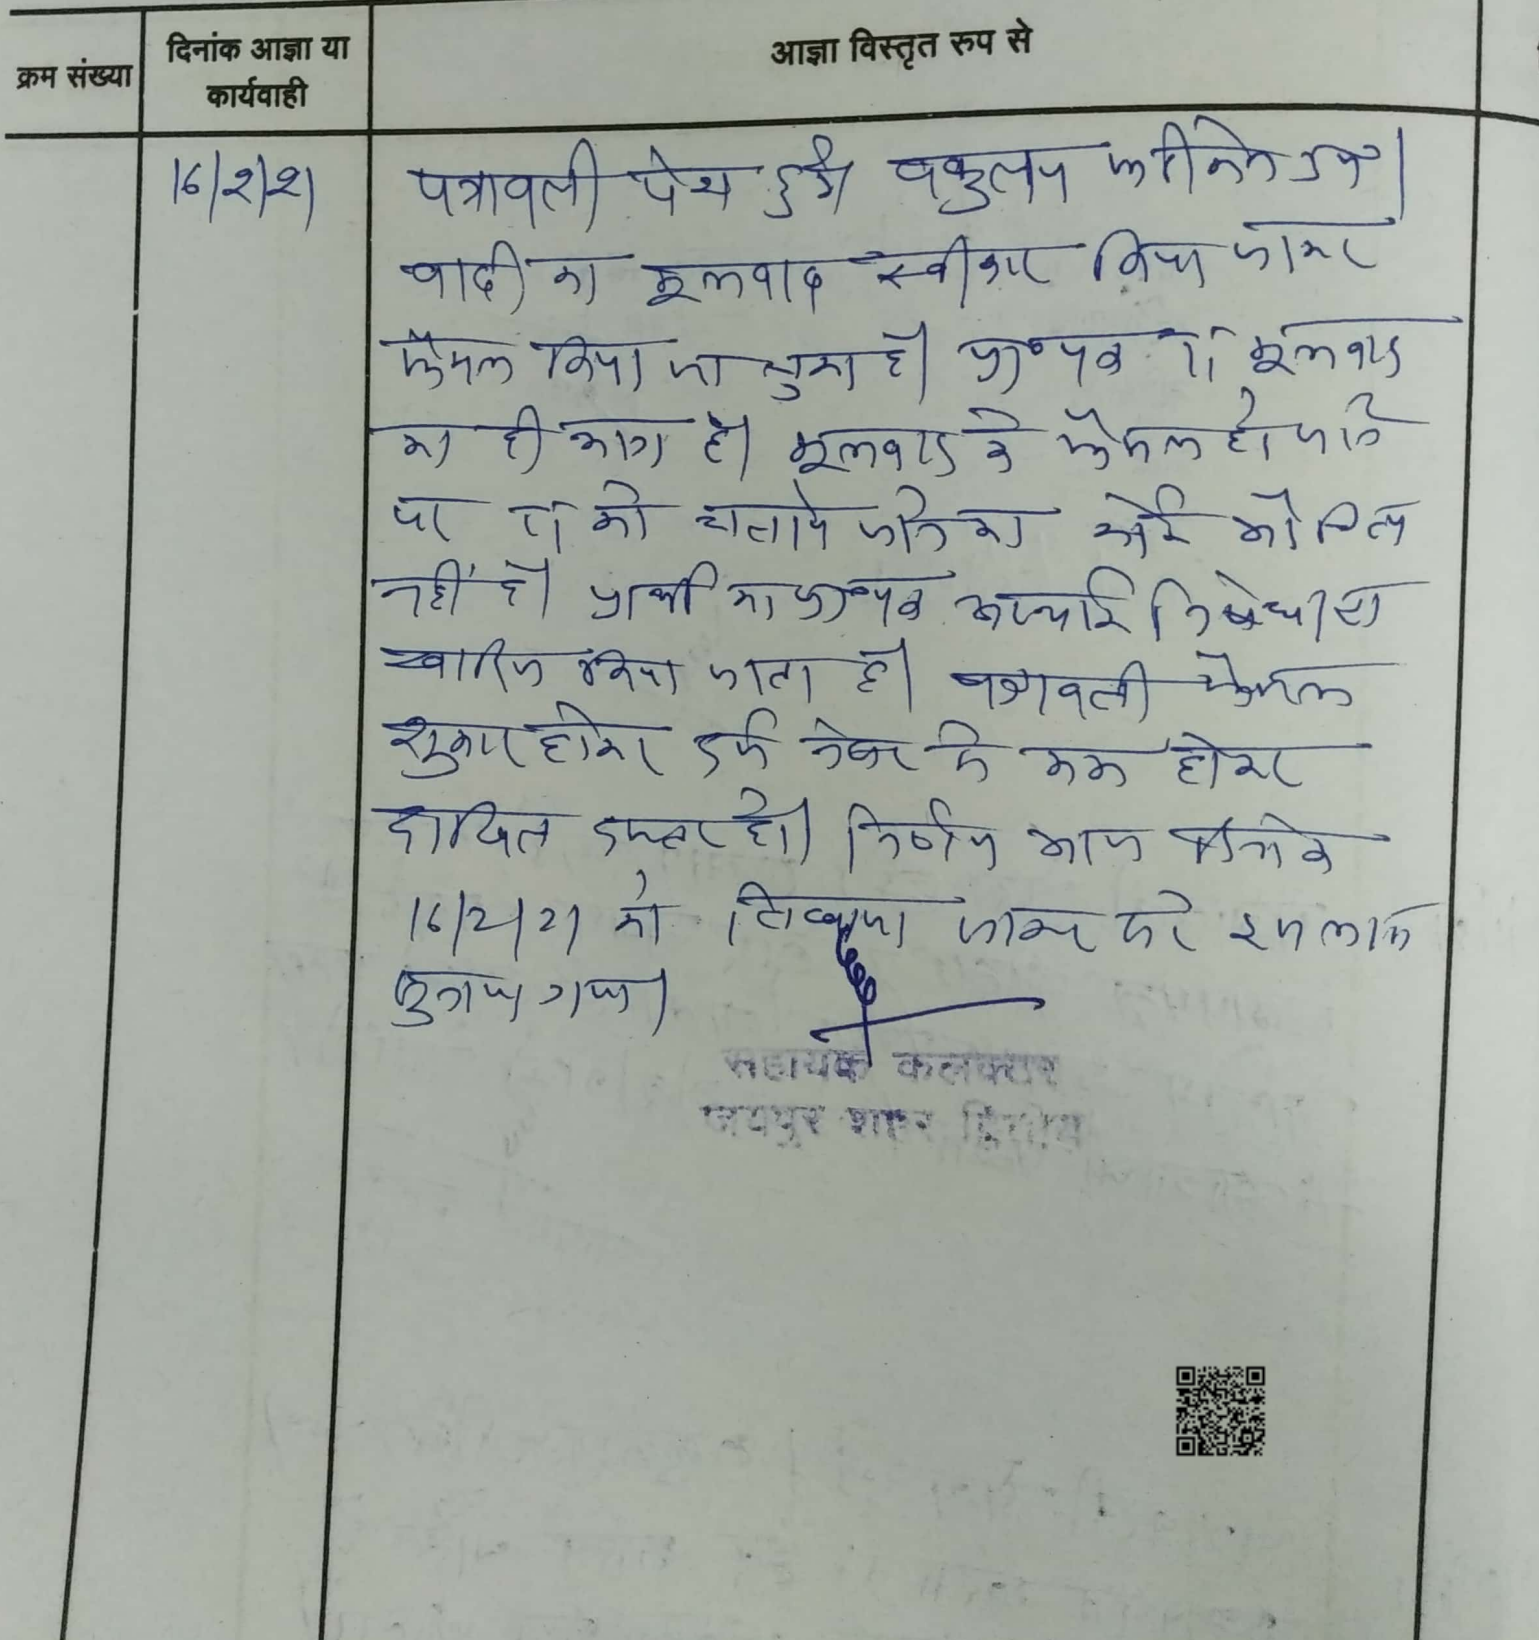 क्रम संख्या
दिनांक आज्ञा या
कार्यवाही
आज्ञा विस्तृत रुप से
16/2/21
पत्रावली पेश हुई। वकुलाय फरीकेन उप०।
वादी का मूलवाद स्वीकार किया जाकर
फैसल किया जा चुका है। प्रा०पत्र TI मूलवाद
का ही भाग है। मूलवाद के फैसल हो जाने
पर TI को चलाये जाने का कोई औचित्य
नहीं है। प्रार्थी का प्रा०पत्र अस्थाई निषेधाज्ञा
खारिज किया जाता है। पत्रावली फैसल
शुमार होकर दर्ज नम्बर से कम होकर
दाखिल दफ्तर हो। निर्णय आज दिनांक
16/2/21 को लिखाया जाकर सरे इजलास
सुनाया गया।
सहायक कलक्टर
जयपुर शहर द्वितीय